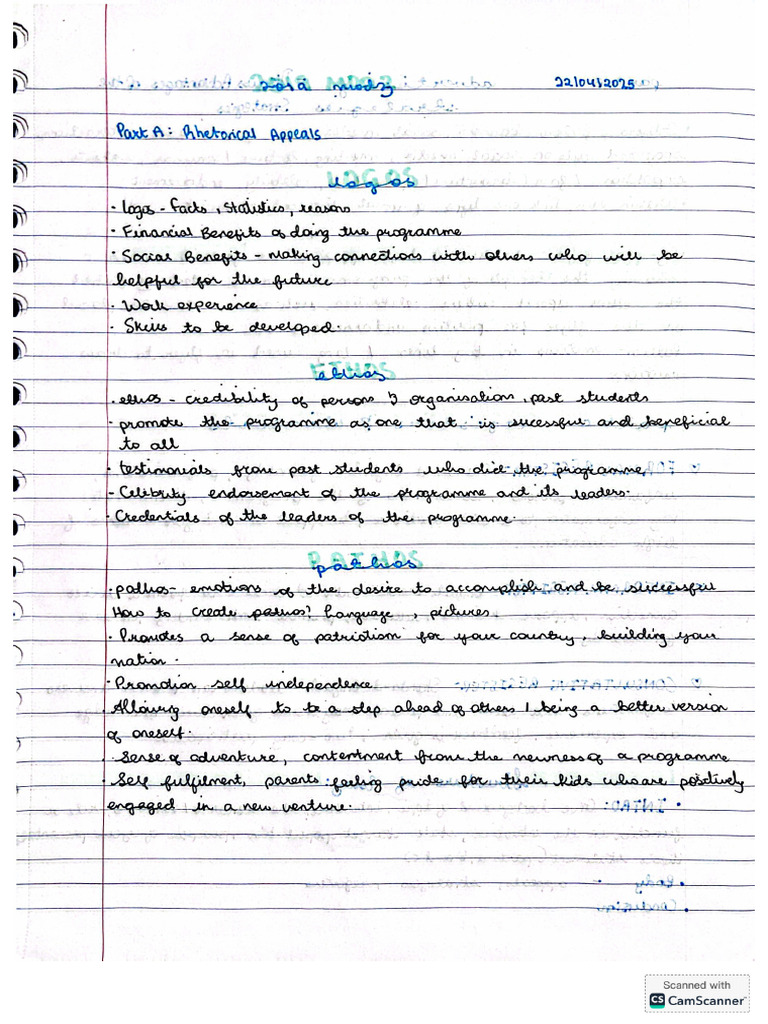 22/04/2025
Part A: Rhetorical Appeals
logos
· Logos - facts, statistics, reasons
· Financial Benefits of doing the programme
· Social Benefits - making connections with others who will be
helpful for the future
· Work experience
· Skills to be developed.
ethos
· ethos - credibility of persons & organisations, past students
· promote the programme as one that is sucessful and beneficial
to all
· testimonials from past students who did the programme
- Celibrity endorsement of the programme and its leaders.
· Credentials of the leaders of the programme.
pathos
· pathos - emotions of the desire to accomplish and be successful
How to create pathos? Language, pictures
· Promotes a sense of patriotism for your country, building your
nation.
· Promotion self independence
· Allowing oneself to be a step ahead of others / being a better version
of oneself.
· Sense of adventure, contentment from the newness of a programme
· Self fulfilment, parents feeling pride for their kids who are positively
engaged in a new venture.
Scanned with
CS CamScanner